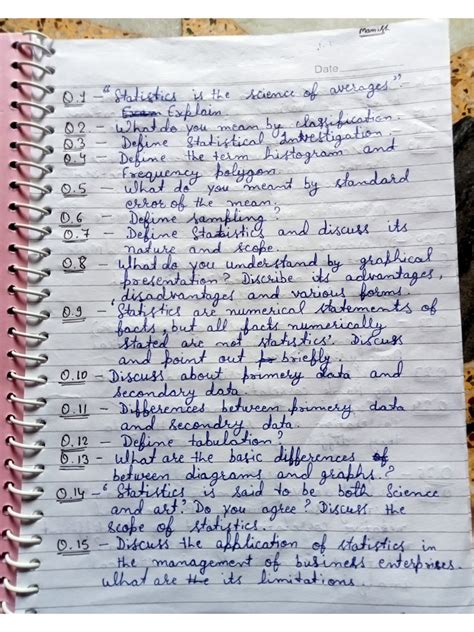 Date
Q.1 - "Statistics is the science of averages".
Explain.
Q.2 - What do you mean by classification.
Q.3 - Define Statistical Investigation -
Q.4 - Define the term histogram and
Frequency polygon.
Q.5 - What do you meant by standard
error of the mean.
Q.6 - Define sampling?
Q.7 - Define Statistics and discuss its
nature and scope.
Q.8 - What do you understand by graphical
presentation? Discribe its advantages,
disadvantages and various forms.
Q.9 - "Statistics are numerical statements of
facts, but all facts numerically
stated are not statistics'. Discuss
and point out briefly.
Q.10 - Discuss about primery data and
secondary data.
Q.11 - Differences between primery data
and secondry data.
Q.12 - Define tabulation?
Q.13 - What are the basic differences of
between diagrams and graphs.?
Q.14 - "Statistics is said to be both Science
and art? Do you agree? Discuss the
scope of statistics.
Q.15 - Discuss the application of statistics in
the management of business enterprises.
What are the its limitations.